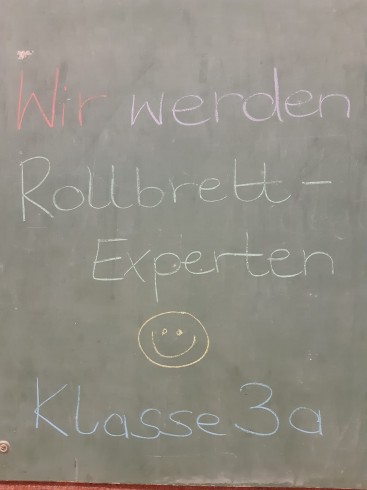 Wir werden
Rollbrett-
Experten
Klasse 3a